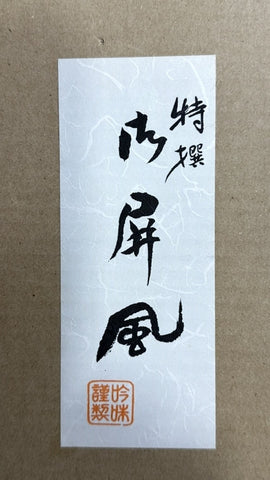 特撰
御屏風
吟味
謹製